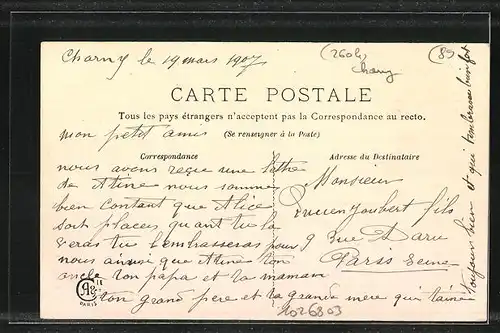 Charny le 19 mars 1907
(2604)
Charny
(89)
CARTE POSTALE
Tous les pays étrangers n'acceptent pas la Correspondance au recto.
(Se renseigner à la Poste)
mon petit amis
Correspondance
nous avons reçue une lettre
de Aline nous sommes
bien contant que Alice
sont placer quant tu la
veras tu l'embrasseras pour
nous ainsi que Aline ton
oncle ton papa et ta maman
ton grand père et ta grande mère qui t'aime
toujours bien et qui t'embrasse bien fort
Adresse du Destinataire
Monsieur
Lucien Joubert fils
9 Rue Daru
Paris Seine
PARIS
1026803